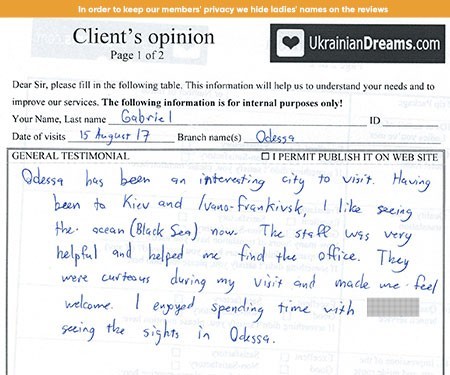 In order to keep our members' privacy we hide ladies' names on the reviews
Client's opinion
Page 1 of 2
UkrainianDreams.com
Dear Sir, please fill in the following table. This information will help us to understand your needs and to
improve our services. The following information is for internal purposes only!
Your Name, Last name Gabriel ID
Date of visits 15 August 17 Branch name(s) Odessa
GENERAL TESTIMONIAL ☐ I PERMIT PUBLISH IT ON WEB SITE
Odessa has been an interesting city to visit. Having
been to Kiev and Ivano-Frankivsk, I like seeing
the ocean (Black Sea) now. The staff was very
helpful and helped me find the office. They
were curteous during my visit and made me feel
welcome. I enjoyed spending time with
seeing the sights in Odessa.